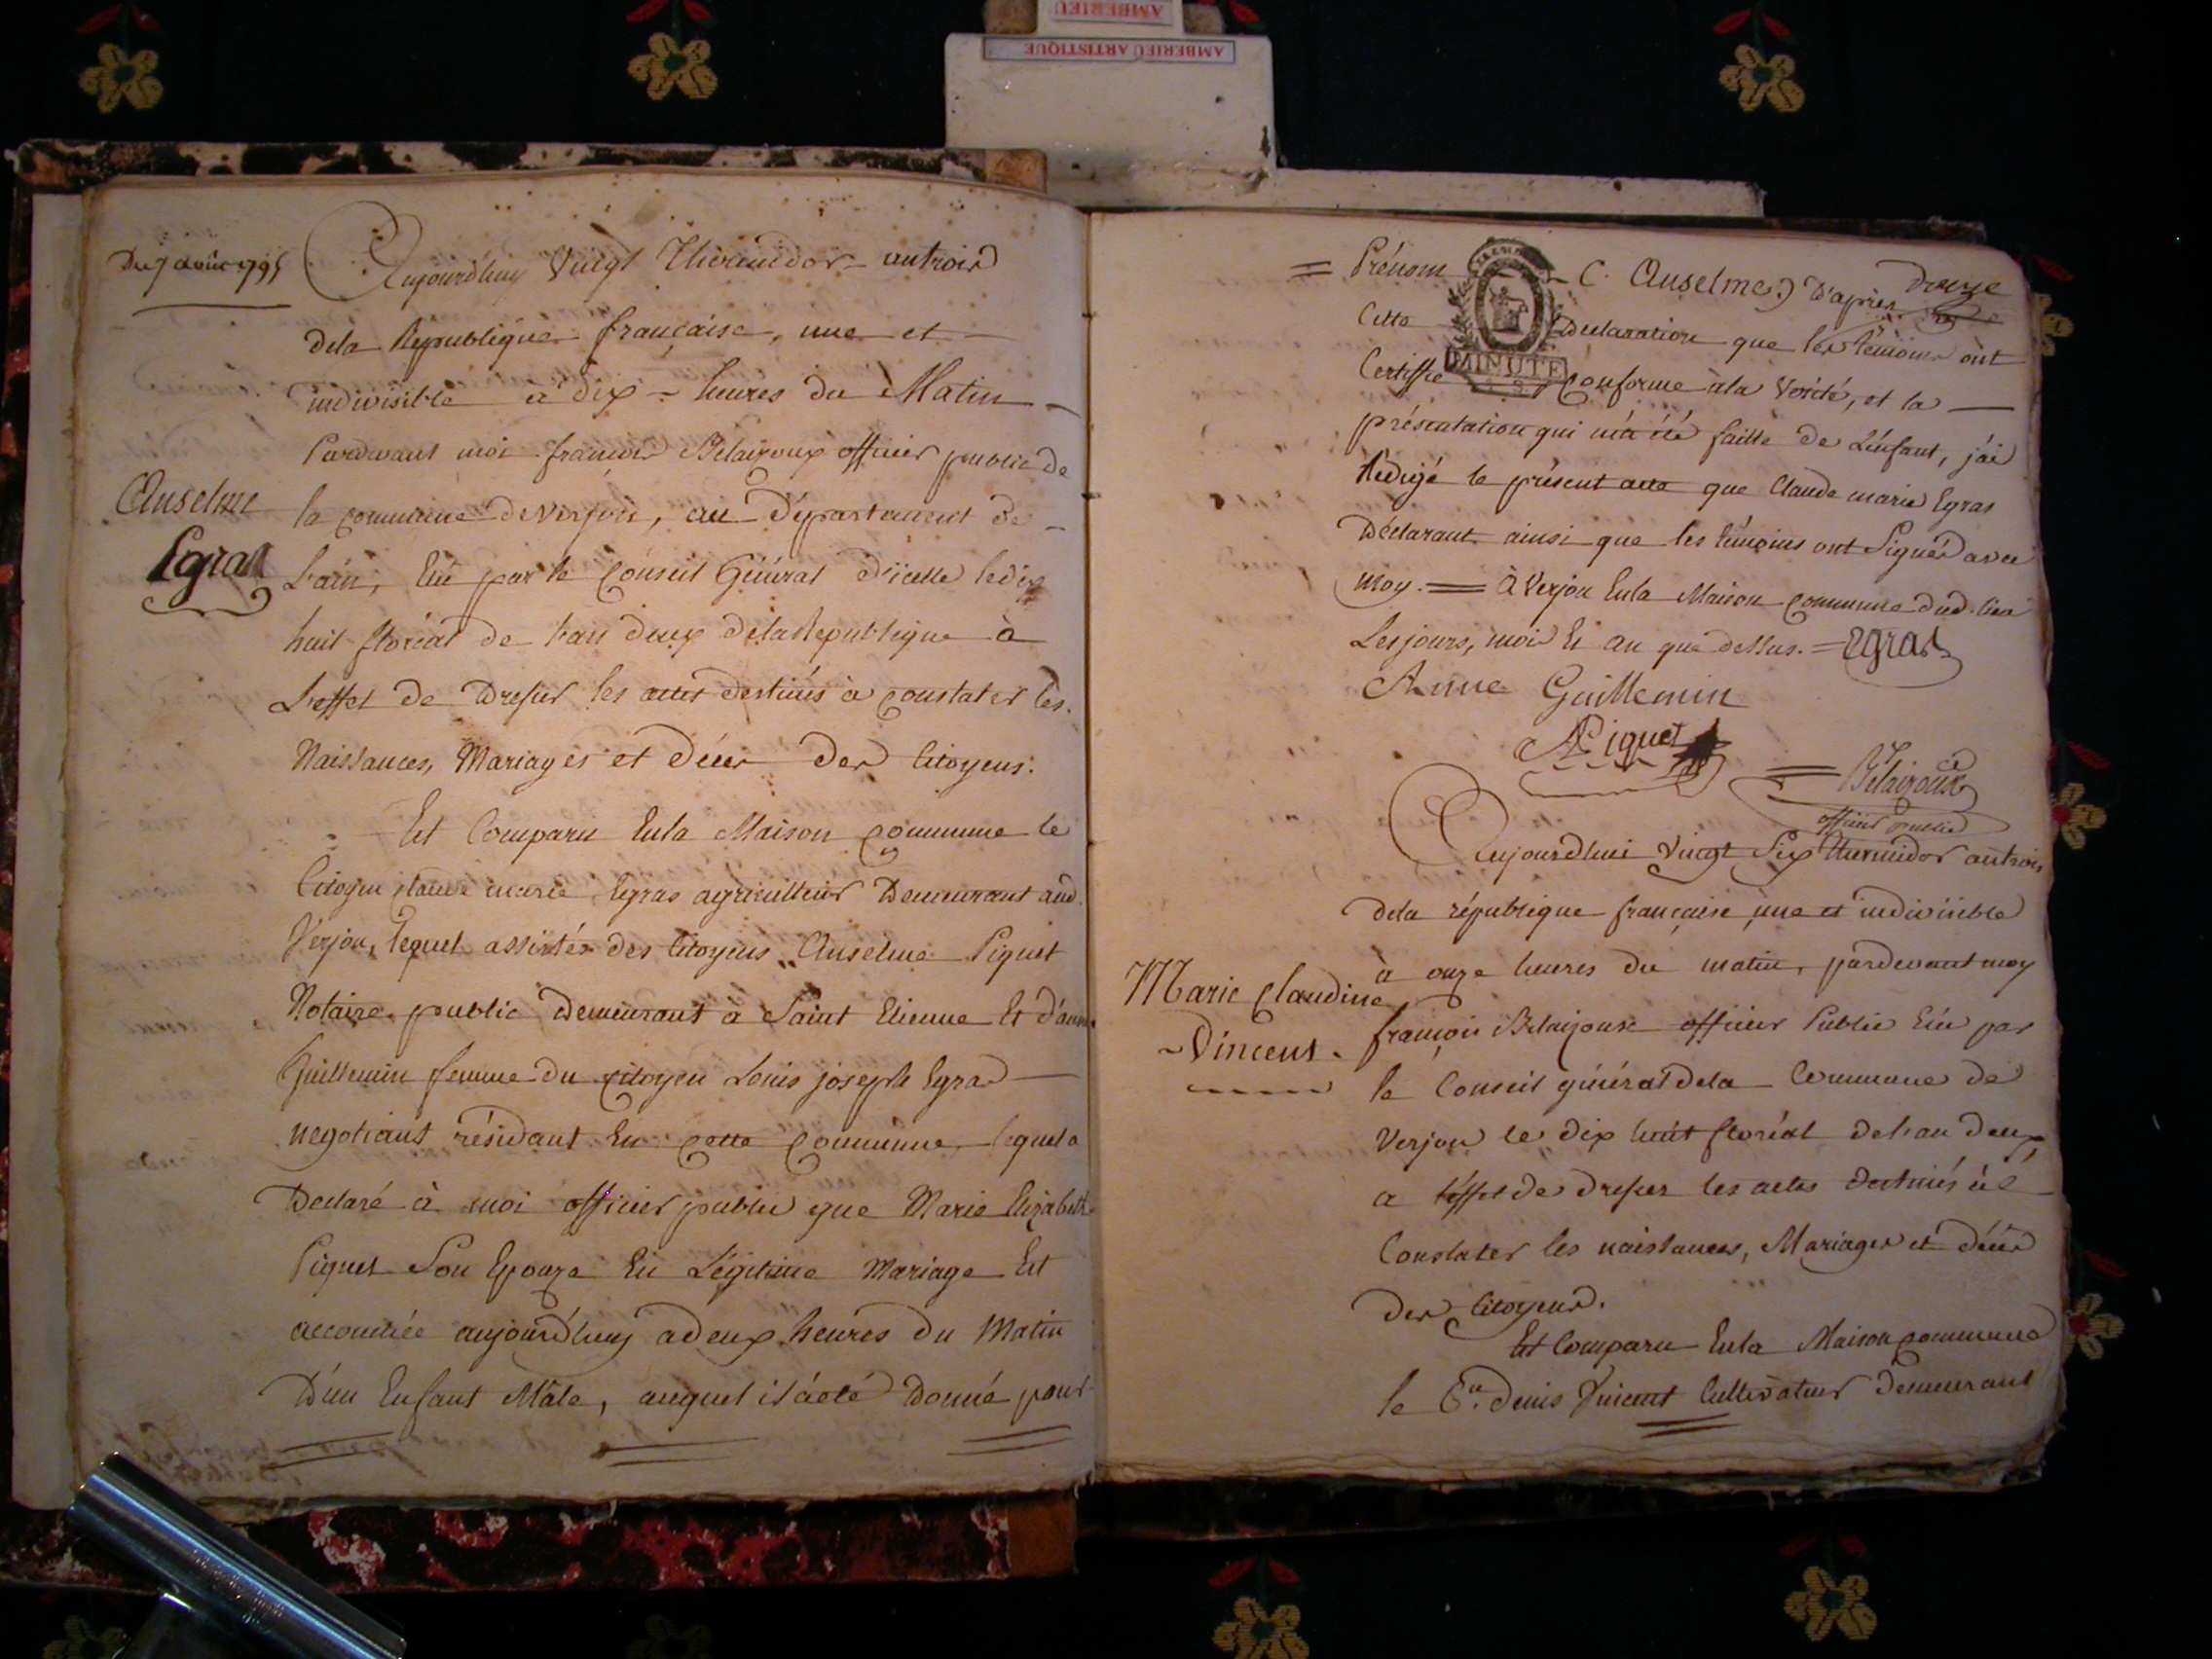 AMBERIEU
AMBERIEU ARTISTIQUE
Du 7 août 1795
Aujourd'huy Vingt Thermidor an trois
dela Republique française, une et
indivisible à dix heures du Matin
Pardevant moi françois Belaizoux officier public de
la commune de verjon, au Département de
L'ain, Elu par le Conseil Général d'icelle le dix
huit floréal de l'an deux dela Republique à
L'effet de dresser les actes destinés à constater les
Naissances, Mariages et décès des Citoyens.
Anselme
Egras
Est Comparu En la Maison commune le
Citoyen Claude marie Egras agriculteur Demeurant aud.
Verjon, lequel assistés des Citoyens Anselme Piquet
Notaire public Demeurant à Saint Etienne Et d'anne
Guillemin femme du citoyen Louis joseph Egras
negotiant résidant En cette Commune, lequel a
Declaré à moi officier public que Marie Elizabeth
Piquet Son Epouze En Légitime Mariage Est
accouchée aujourd'huy a deux heures du Matin
D'un Enfant Mâle, auquel il a été Donné pour
= Prénom C. Anselme) D'après
Cette Declaration que les témoins ont
MINUTE
Certiffié Conforme à la Vérité, et la
présentation qui m'a été faitte de L'enfant, j'ai
Rédigé le présent acte que Claude marie Egras
Déclarant ainsi que les témoins ont Signés avec
Moy. = à Verjon En la Maison Commune dud. lieu
Les jours, mois Et an que dessus. = Egras
Anne Guillemin
Piquet
Belaizoux
officier public
Aujourdhui vingt Six thermidor an trois
dela république française une et indivisible
à onze heures du matin, pardevant moy
françois Belaizoux officier Public Elu par
le Conseil général dela Commune de
Verjon le dix huit floréal de l'an deux,
a l'éffet de dresser les actes destinés à
Constater les naissances, Mariages et décès
des Citoyens.
Marie Claudine
Vincent.
Est Comparu En la Maison commune
le C.en denis Vincent Cultivateur Demeurant